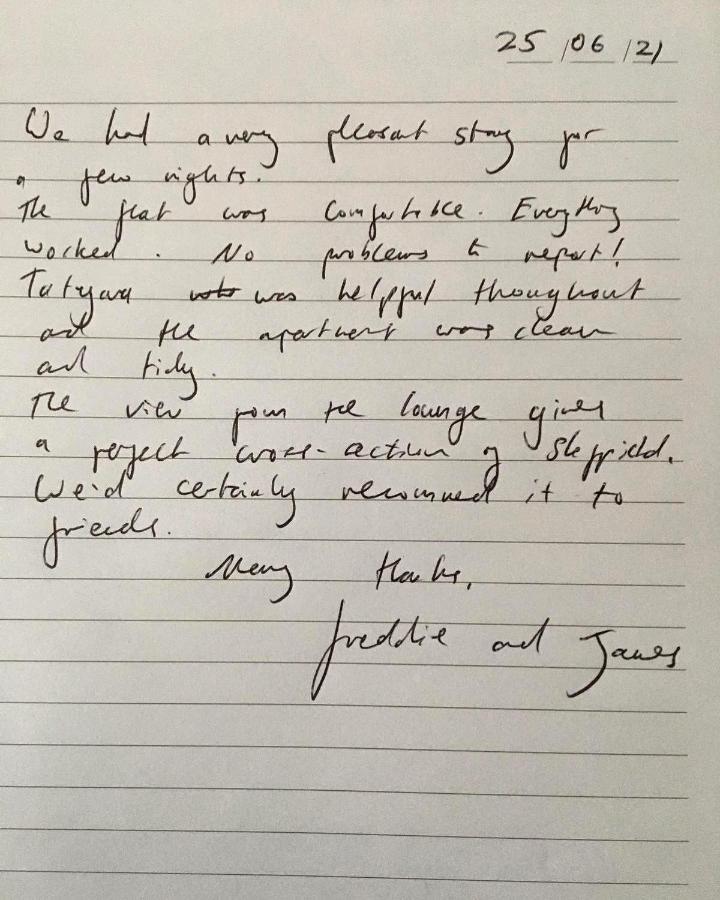 25/06/21
We had a very pleasant stay for
a few nights.
The flat was comfortable. Everything
worked. No problems to report!
Tatyana was helpful throughout
and the apartment was clean
and tidy.
The view from the lounge gives
a perfect cross-section of Sheffield.
We'd certainly recommend it to
friends.
Many thanks,
Freddie and James